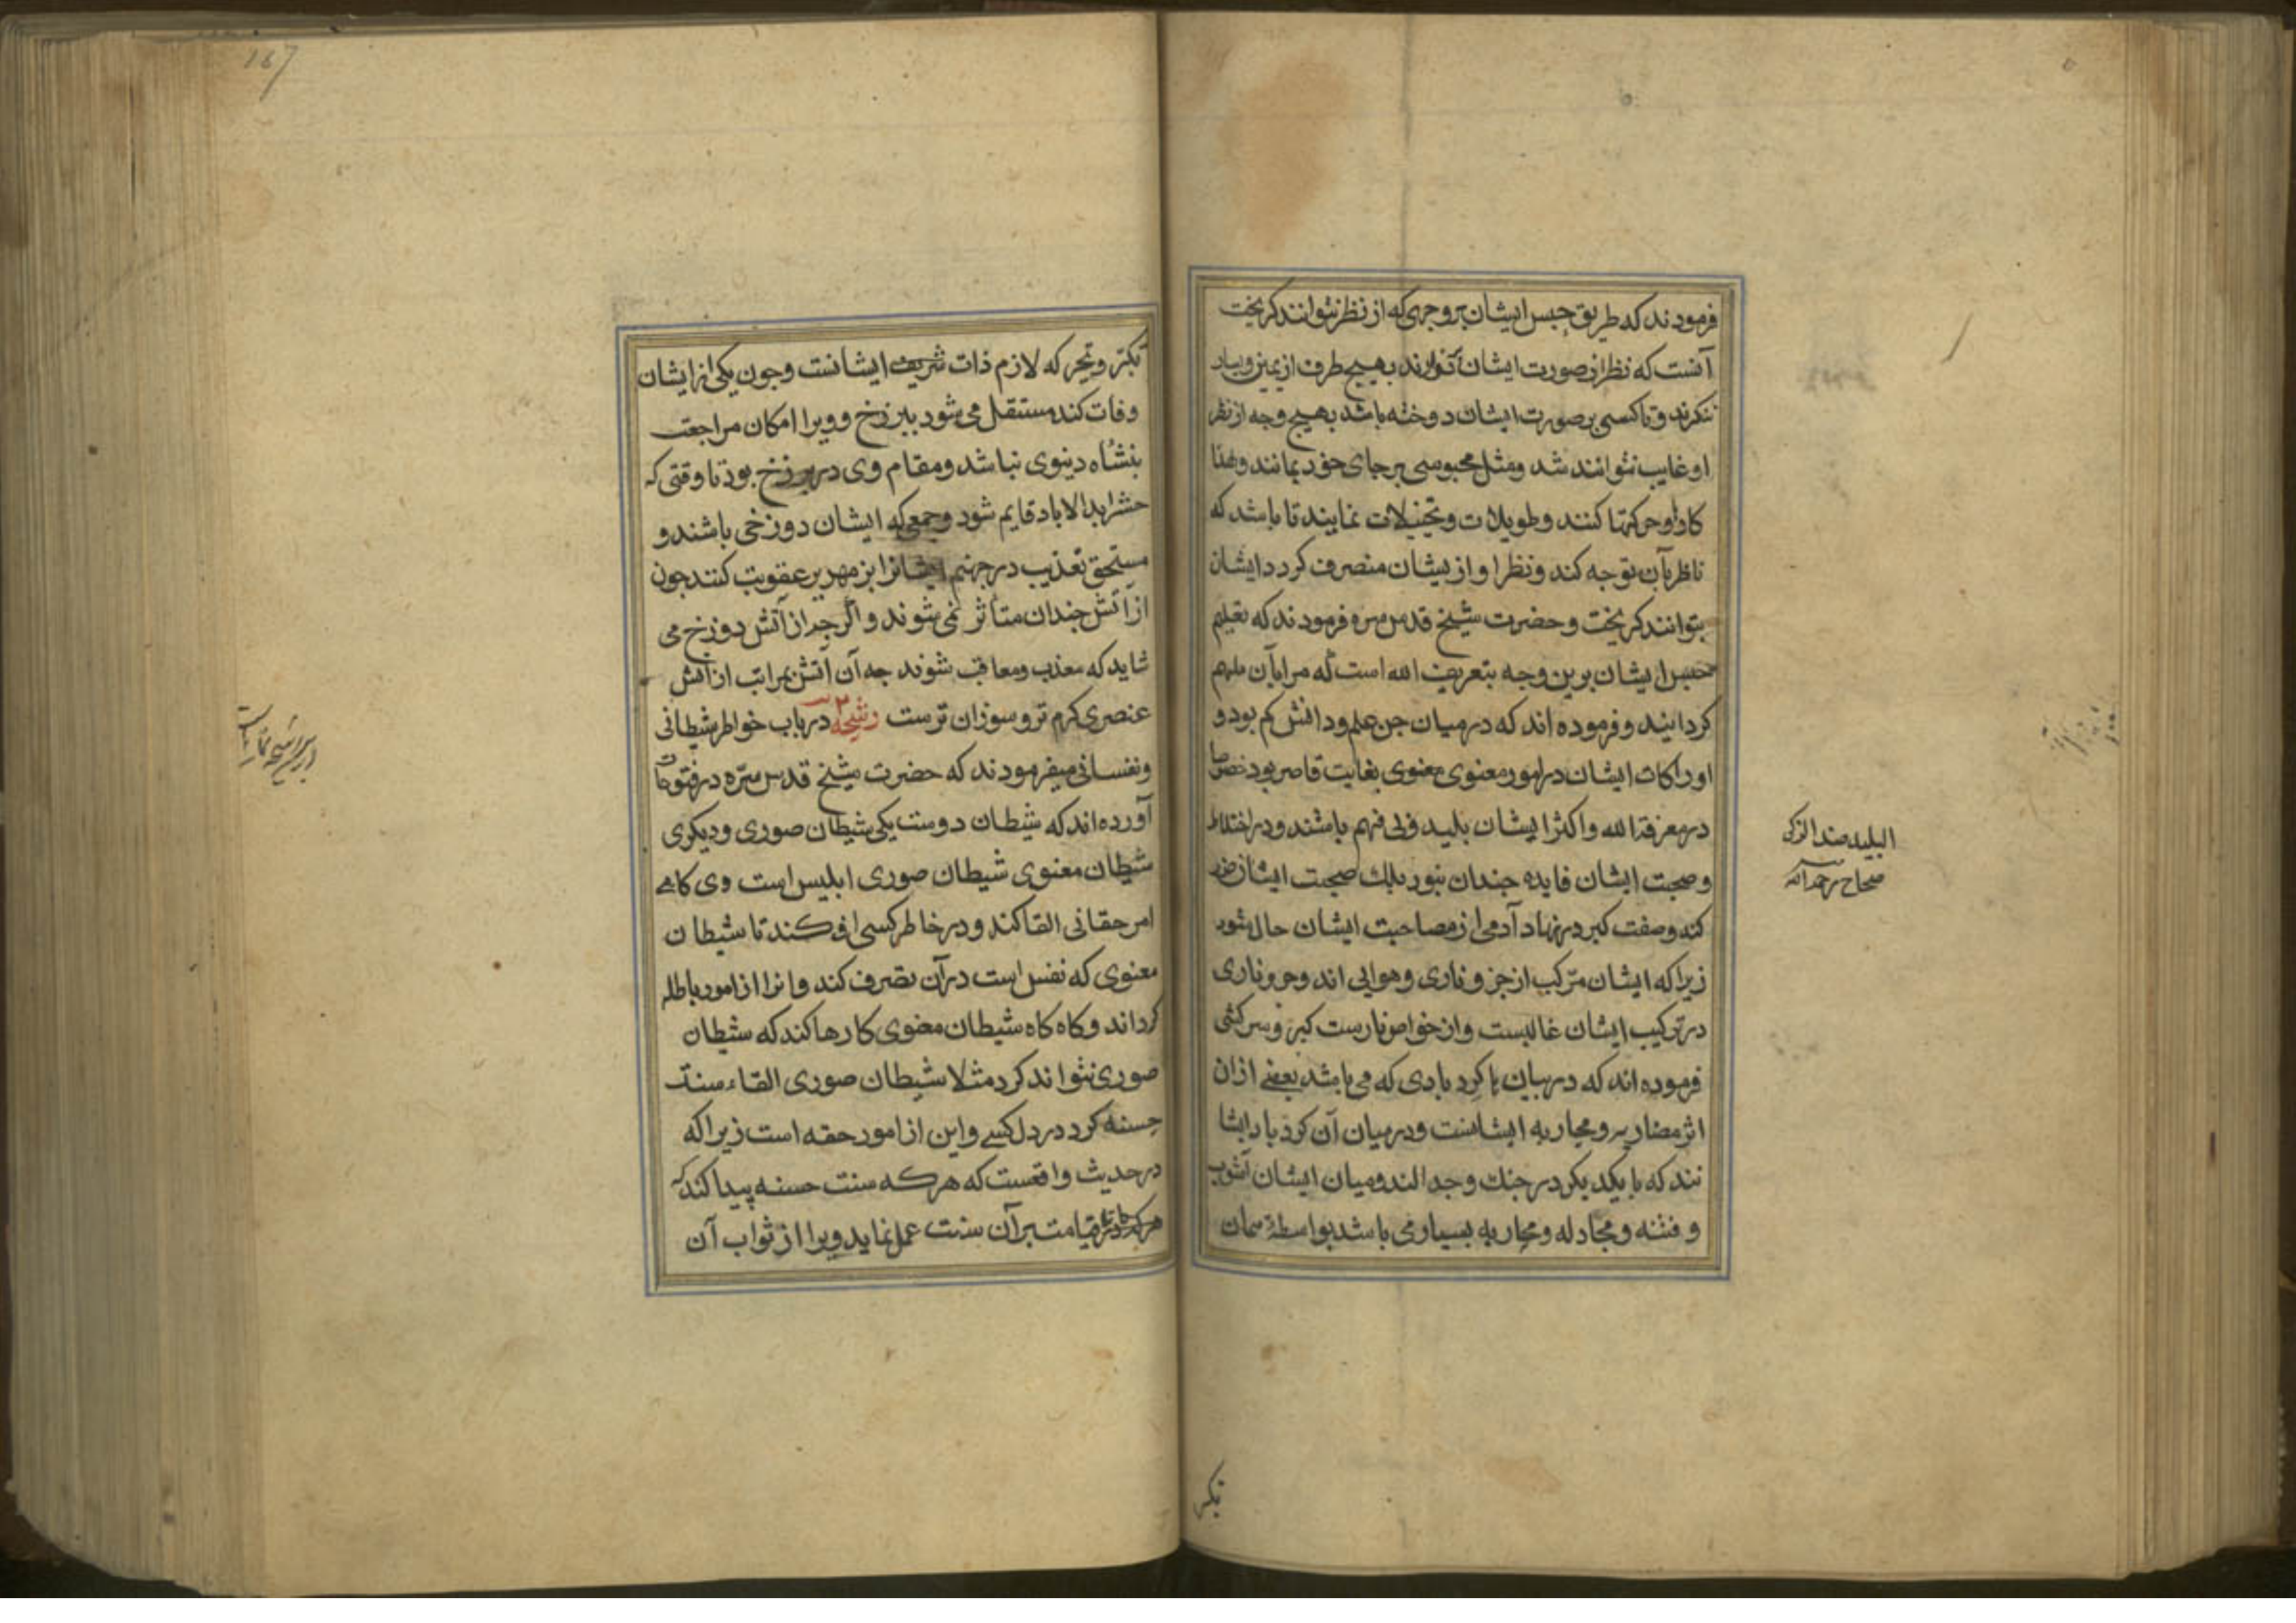 فرمودند که طریق حبس ایشان بر وجهی که از نظر نتوانند کریخت
آنست که نظر از صورت ایشان برندارند بهیچ طرف از یمین و یسار
ننکرند و تا کسی بر صورت ایشان دوخته باشد بهیچ وجه از نظر
او غایب نتوانند شد و مثل محبوسی بر جای خود بمانند و لهذا
کارها و حرکتها کنند و طویلات و تخییلات نمایند تا باشد که
ناظر بآن توجه کند و نظر او از یشان منصرف کردد ایشان
بتوانند کریخت و حضرت شیخ قدس سره فرمودند که تعلیم
حبس ایشان برین وجه بتعریف الله است که مرا بآن ملهم
کردانید و فرموده اند که در میان جن علم و دانش کم بود و
اوراکات ایشان در امور معنوی معنوی بغایت قاصر بود خصوصا
در معرفة الله و اکثر ایشان بلید و بی فهم باشند و در اختلاط
و صحبت ایشان فایده جندان نبود بلک صحبت ایشان ضرر
کند و صفت کبر در نهاد آدمی از مصاحبت ایشان حال شود
زیرا که ایشان مرکب از جزو ناری و هوایی اند و جزو ناری
در ترکیب ایشان غالبست و از خواص نارست کبر و سرکشی
فرموده اند که در بیان یا کرد بادی که می باشد بعضے ازان
اثر مضاربه و محاربه ایشانست و در میان آن کرد باد ایشا
نند که با یکدیکر در جنك و جدالند و میان ایشان آشوب
و فتنه و مجادله و محاربه بسیار می باشد بواسطۀ همان
البلید ضد الزکی
صحاح رحمه الله
تکبر
167
تکبر و تجبر که لازم ذات شریف ایشانست و جون یکی از ایشان
وفات کند مستقل می شود ببرزخ و ویرا امکان مراجعت
بنشاه دینوی نباشد و مقام وی در برزخ بود تا وقتی که
حشر ابد الاباد قایم شود و جمعی که ایشان دوزخی باشند و
مستحق تعذیب در جهنم ایشانرا بزمهریر عقوبت کنند جون
از آتش جندان متأثر نمی شوند و اکر جه از آتش دوزخ می
شاید که معذب و معاقب شوند جه آن آتش بمراتب از آتش
عنصری کرم تر و سوزان ترست رشحه در باب خواطر شیطانی
و نفسانی میفرمودند که حضرت شیخ قدس سره در فتوحات
آورده اند که شیطان دوست یکی شیطان صوری و دیکری
شیطان معنوی شیطان صوری ابلیس است وی کاهے
امر حقانی القا کند و در خاطر کسی افکند تا شیطان
معنوی که نفس است در آن تصرف کند و انرا از امور باطله
کرداند و کاه کاه شیطان معنوی کارها کند که شیطان
صوری نتواند کرد مثلا شیطان صوری القاء سنت
حسنه کرد در دل کسے و این از امور حقه است زیرا که
در حدیث واقعست که هر که سنت حسنه پیدا کند که
هر که تا قیامت بر آن سنت عمل نماید ویرا از ثواب آن